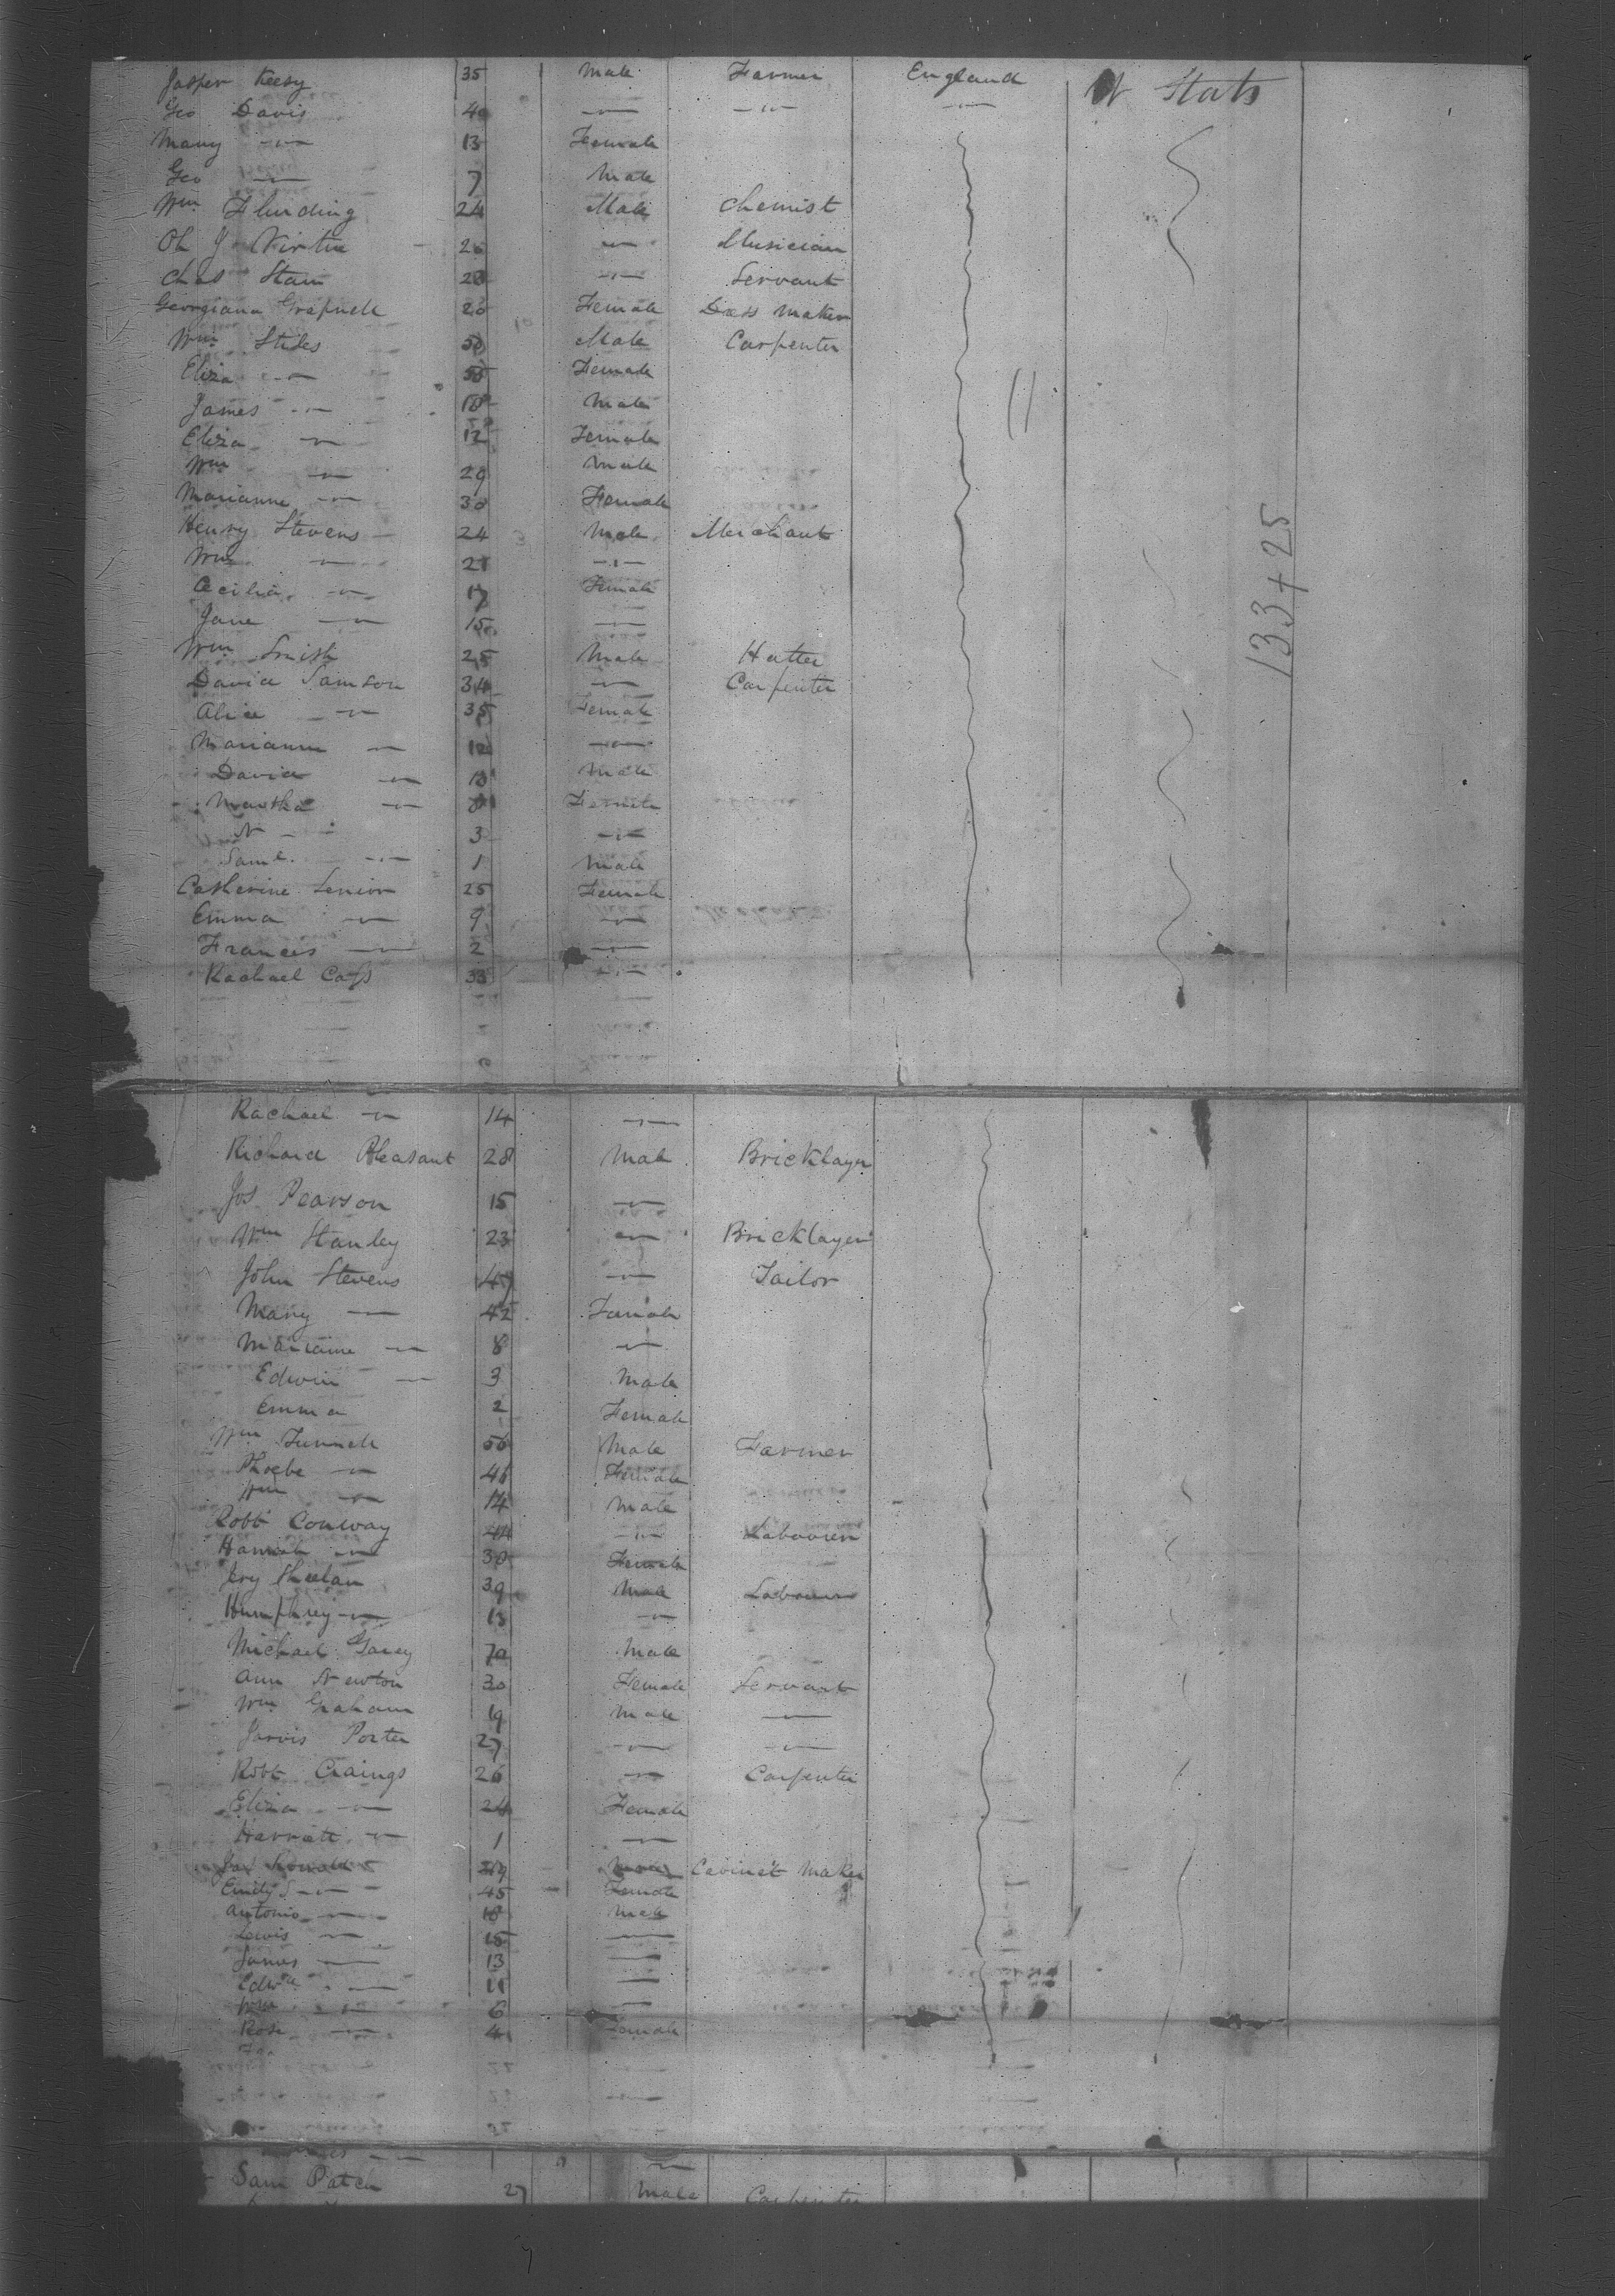 Jasper Keesy 35 Male Farmer England U States
Geo Davis 40 —〃— —〃— —〃—
Mary —〃— 13 Female
Geo —〃— 7 Male
Wm 24 Male Chemist
J Virtue 26 —〃— Musician
Chas 28 —〃— Servant
Georgiana 26 Female Dress Maker
Wm Stiles 50 Male Carpenter
Eliza —〃— 55 Female
James —〃— 18 Male
Eliza —〃— 12 Female
Wm —〃— 29 Male
Marianne —〃— 30 Female
Henry Stevens 24 Male Merchant
Wm —〃— 21 —〃—
Cecilia —〃— 17 Female
Jane —〃— 15 —〃—
133+25
Wm Smith 25 Male Hatter
David Samson 34 —〃— Carpenter
Alice —〃— 35 Female
Marianne —〃— 12 —〃—
David —〃— 10 Male
Martha —〃— 8 Female
N —〃— 3 —〃—
Saml. —〃— 1 Male
Catherine Senior 25 Female
Emma —〃— 9 —〃—
Frances —〃— 2 —〃—
Rachael Cass 33 —〃—
Rachael —〃— 14 —〃—
Richard Pleasant 28 Male Bricklayer
Jos Pearson 15 —〃—
Wm Stanley 23 —〃— Bricklayer
John Stevens 47 —〃— Tailor
Mary —〃— 42 Female
Marianne —〃— 8 —〃—
Edwin —〃— 3 Male
Emma 2 Female
Wm Funnell 56 Male Farmer
Phoebe —〃— 46 Female
Wm —〃— 14 Male
Robt Conway 44 —〃— Labourer
Hannah —〃— 30 Female
Jery Sheelan 39 Male Labourer
Humphrey —〃— 13 —〃—
Michael Garey 70 Male
Ann Newton 30 Female Servant
Wm Graham 19 Male —〃—
Jarvis Porter 27 —〃— —〃—
Robt Craings 26 —〃— Carpenter
Eliza —〃— 24 Female
Harriett —〃— 1 —〃—
Jas Male Cabinet Maker
Emily —〃— 45 Female
Antonio —〃— 18 Male
Lewis —〃— 15 —〃—
James —〃— 13 —〃—
Edwd —〃— 11 —〃—
Wm —〃— 6 —〃—
Rose —〃— 4 Female
Sam Patch 27 Male Carpenter